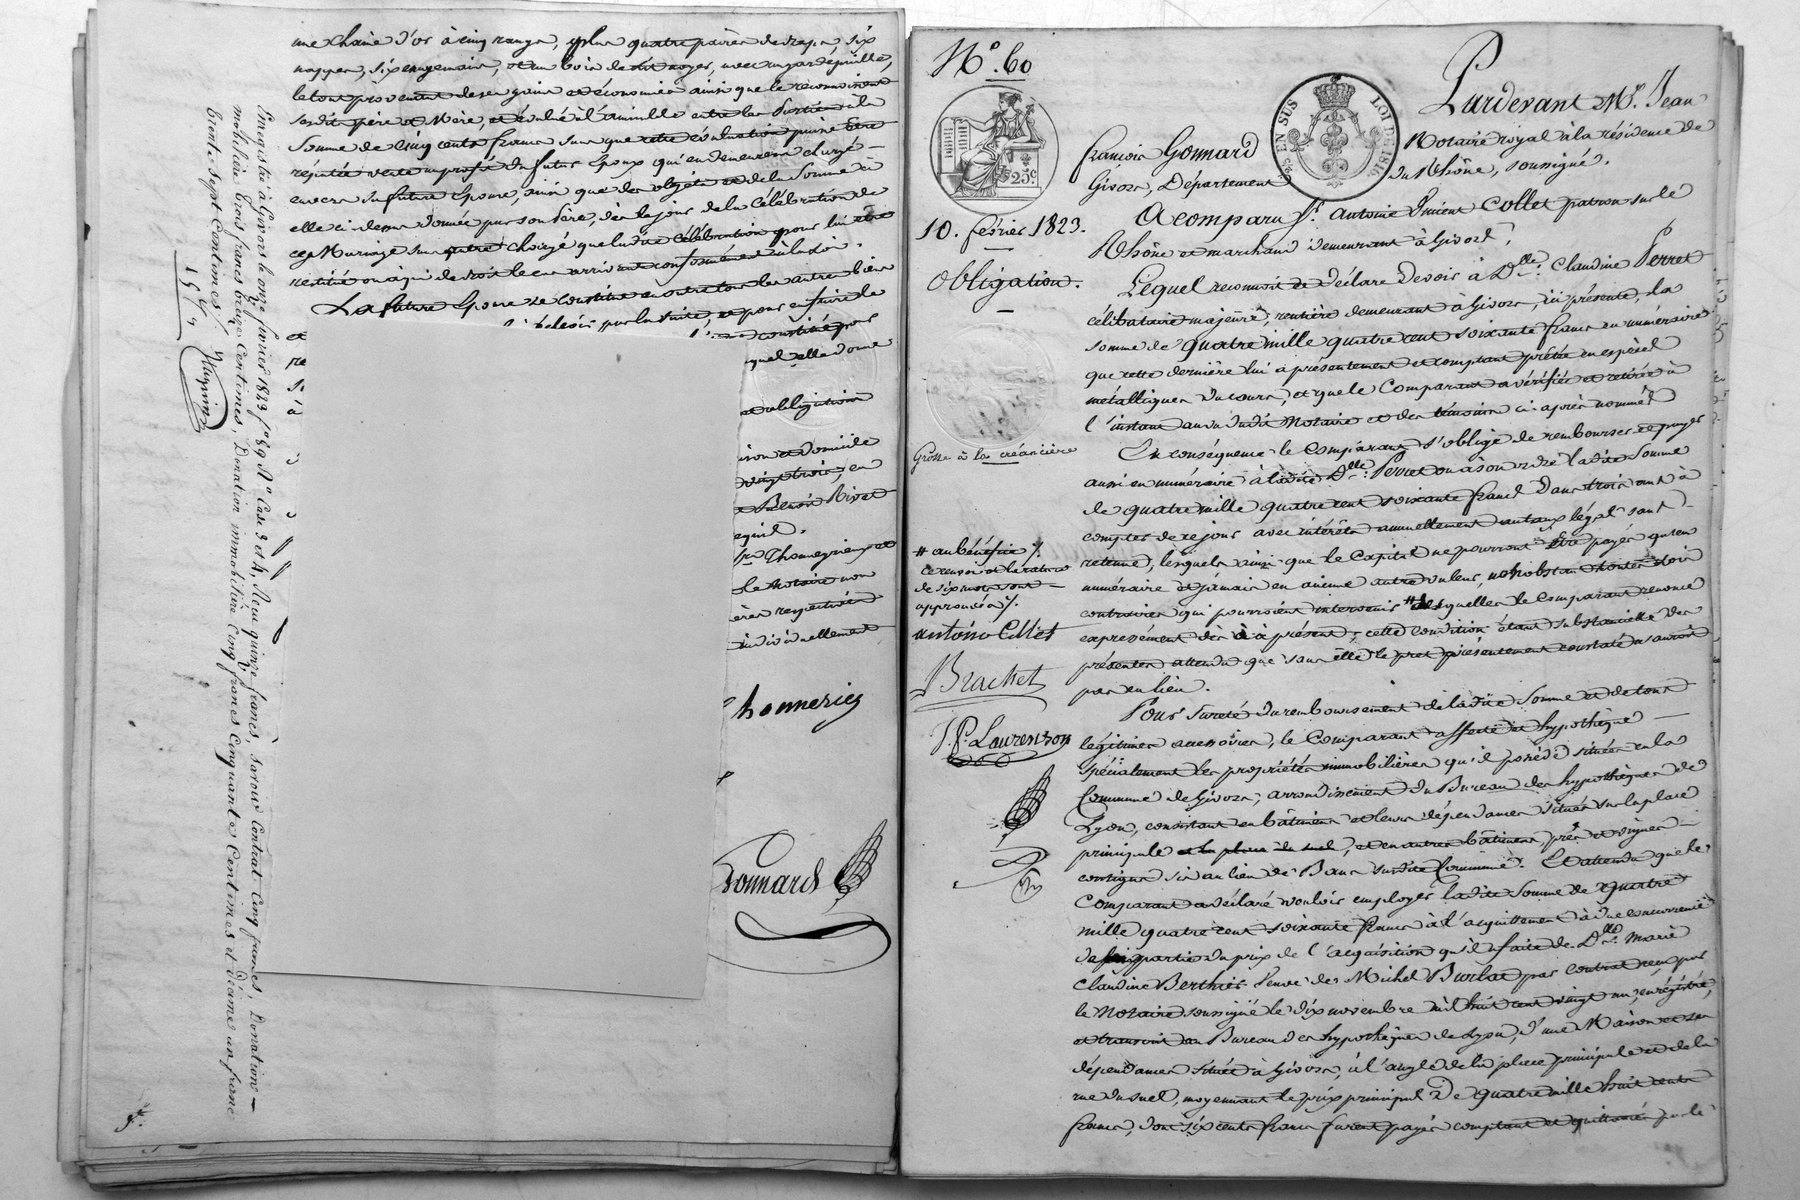 une chaine d'or à cinq rangs, plus quatre paires de draps, six
nappes, six essuyemains, et un bois de lit noyer, avec un garde paille,
le tout provenant de ses gains et économies ainsi que le reconnoissent
sesdits père et Mère, et évalué à l'amiable entre les Parties à la
Somme de cinq cents francs sans que cette évaluation puisse être
réputée vente au profit du futur Epoux qui en demeurera chargé
envers sa future Epouse, ainsi que des objets et de la Somme à
elle ci-dessus donnée par son Père, dès le jour de la Célébration de
ce Mariage sans autre charge que ladite célébration pour lui être
restitué ou à qui de droit le cas arrivant conformément à la loi.
La future Epouse se constitue en outre tous les autres biens
par la suite, et pour en faire la
et
constitué pour
re
quel elle donne
et obligations
et domicile
vingt trois, en
Benoît Rivat
Thomezieux et
le Notaire non
ères respectives
individuellement
honneriez
Gonnard
Enregistré à Givors le onze février 1823, fo 89 Vo Case 3 et 4, Reçu quinze francs, savoir Contrat Cinq francs, Donation
mobilière trois francs treize Centimes, Donation immobilière Cinq francs Cinquante Centimes et Décime un franc
trente sept Centimes
No. 60
25c
25c EN SUS
LOI DE 1816
10. février 1823.
Obligation.
Grosse à la créancière
# au bénéfice
ce renvoi et la rature
de six mots sont
approuvés
antoine Collet
Brachet
J. P. Laurenson
Pardevant Me. Jean
François Gonnard Notaire royal à la résidence de
Givors, Département du Rhône, soussigné.
A comparu Sr. Antoine Vincent Collet patron sur le
Rhône et marchand demeurant à Givors;
Lequel reconnoit et déclare devoir à Dlle. Claudine Perret
célibataire majeure, rentière demeurant à Givors, ici présente, la
somme de quatre mille quatre cent soixante francs en numéraire
que cette dernière lui a présentement et comptant prêtée en espèces
métalliques du cours, et que le Comparant a vérifiée et retirée à
l'instant au vu dudit Notaire et des témoins ci-après nommés
En conséquence le Comparant s'oblige de rembourser et payer
aussi en numéraire à ladite Dlle. Perret ou à son ordre ladite Somme
de quatre mille quatre cent soixante francs dans trois ans à
compter de ce jour avec intérêts annuellement au taux légal sans
retenue, lesquels ainsi que le Capital ne pourront être payés qu'en
numéraire et jamais en aucune autre valeur, nonobstant toutes lois
contraires qui pourroient intervenir # desquelles le Comparant renonce
expressément dès à présent, cette condition étant substancielle des
présentes attendu que sans elle le prêt présentement constaté n'auroit
pas eu lieu.
Pour sureté du remboursement de ladite Somme et de tous
légitimes accessoires, le Comparant affecte et hypothèque
spécialement les propriétés immobilières qu'il possède situées en la
Commune de Givors, arrondissement du Bureau des hypothèques de
Lyon, consistant en bâtiments et leurs dépendances situés sur la place
principale et la place du suel, et en autres bâtiments, prés et vignes
contigus sis au lieu de Bans susdite Commune. Et attendu que le
Comparant a déclaré vouloir employer ladite Somme de quatre
mille quatre cent soixante francs à l'acquittement à due concurrence
de partie du prix de l'acquisition qu'il a faite de Dlle. Marie
Claudine Berthier Veuve de Michel Burlat par contrat reçu par
le Notaire soussigné le dix novembre mil huit cent vingt un, enregistré,
et transcrit au Bureau des hypothèques de Lyon, d'une Maison et ses
dépendances située à Givors, à l'angle de la place principale et de la
rue du suel, moyennant le prix principal de quatre mille huit cents
francs, dont six cents francs furent payés comptant et quittancés par le